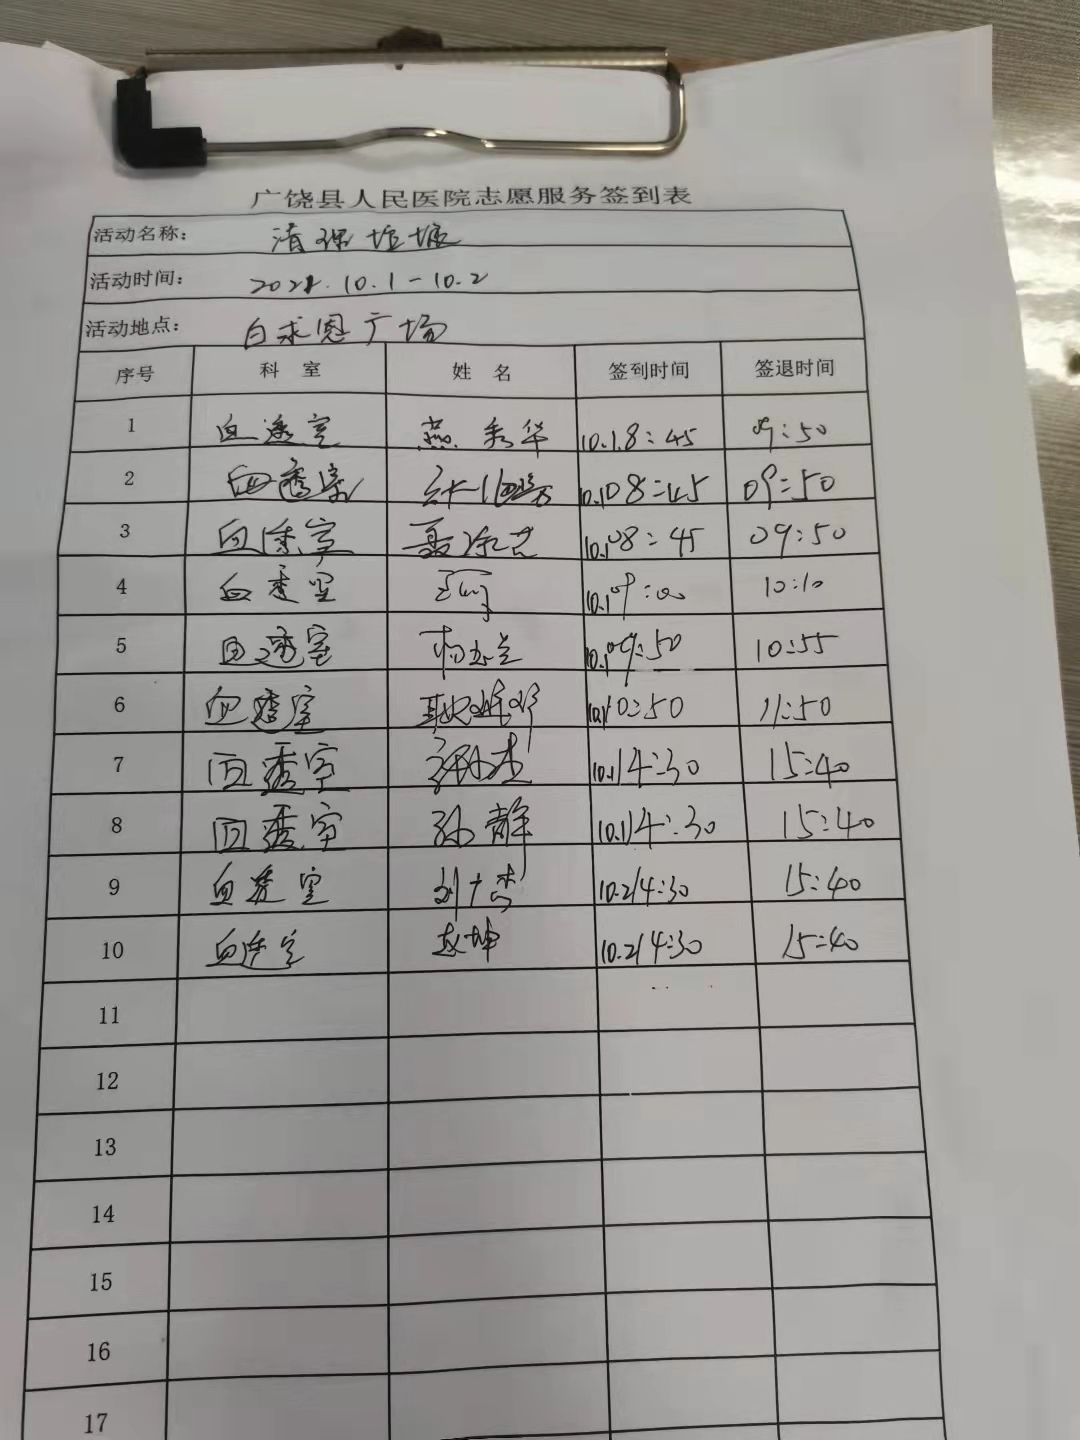 广饶县人民医院志愿服务签到表
活动名称： 清理垃圾
活动时间： 2021.10.1-10.2
活动地点： 白求恩广场
序号 科室 姓名 签到时间 签退时间
1 血透室 燕秀华 10.1.8:45 09:50
2 血透室 10.1 08:45 09:50
3 血透室 10.1 08:45 09:50
4 血透室 10.1 09:00 10:10
5 血透室 杨玉兰 10.1 09:50 10:55
6 血透室 10.1 10:50 11:50
7 血透室 10.1 14:30 15:40
8 血透室 孙静 10.1 14:30 15:40
9 血透室 刘广杰 10.2 14:30 15:40
10 血透室 赵坤 10.2 14:30 15:40
11
12
13
14
15
16
17